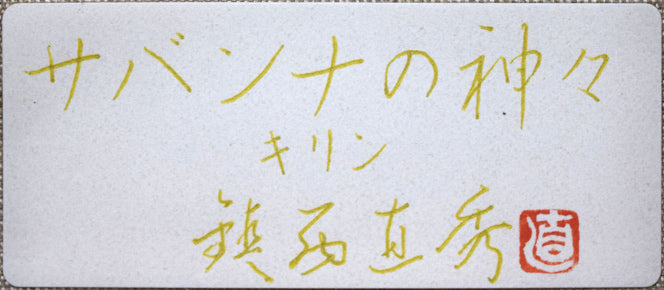 サバンナの神々
キリン
鎮西直秀 直